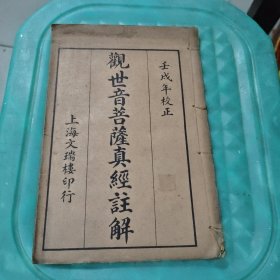 壬戌年校正
觀世音菩薩真經註解
上海文瑞樓印行